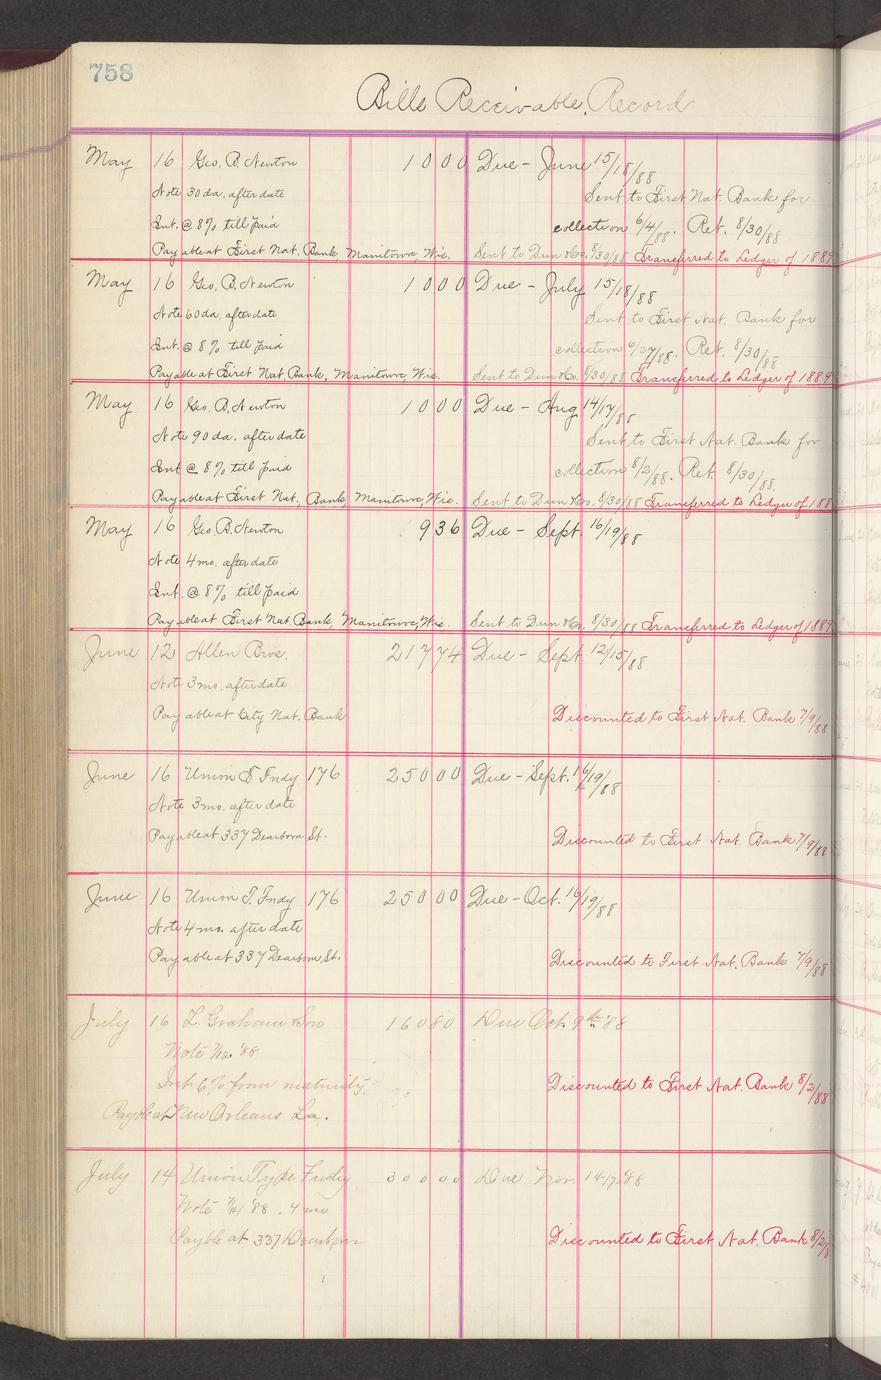 758
Bills Receivable Record
May 16 Geo. B. Newton 1000 Due - June 15/18/88
Note 30 da. after date Sent to First Nat. Bank for
Int. @ 8% till paid collection 6/4/88. Ret. 8/30/88
Payable at First Nat. Bank, Manitowoc, Wis. Sent to Dun & Co. 8/30/88 Transferred to Ledger of 1889
May 16 Geo. B. Newton 1000 Due - July 15/18/88
Note 60 da. after date Sent to First Nat. Bank for
Int. @ 8% till paid collection 6/27/88. Ret. 8/30/88
Payable at First Nat. Bank, Manitowoc, Wis. Sent to Dun & Co. 8/30/88 Transferred to Ledger of 1889
May 16 Geo. B. Newton 1000 Due - Aug 14/17/88
Note 90 da. after date Sent to First Nat. Bank for
Int @ 8% till paid collection 8/2/88. Ret. 8/30/88.
Payable at First Nat. Bank, Manitowoc, Wis. Sent to Dun & Co. 8/30/88 Transferred to Ledger of 188
May 16 Geo B. Newton 936 Due - Sept. 16/19/88
Note 4 mo. after date
Int. @ 8% till paid
Payable at First Nat. Bank, Manitowoc, Wis. Sent to Dun & Co. 8/30/88 Transferred to Ledger of 1889
June 12 Allen Bros. 217 74 Due - Sept 12/15/88
Note 3 mo. after date
Payable at City Nat. Bank Discounted to First Nat. Bank 7/9/88
June 16 Union T Fndy 176 250 00 Due - Sept. 16/19/88
Note 3 mo. after date
Payable at 337 Dearborn St. Discounted to First Nat. Bank 7/9/88
June 16 Union T. Fndy 176 250 00 Due - Oct. 16/19/88
Note 4 mo. after date
Payable at 337 Dearborn St. Discounted to First Nat. Bank 7/9/88
July 16 L. Graham & Son 160 80 Due Oct. 9th '88
Note 7/12 '88
Int 6% from maturity. Discounted to First Nat. Bank 8/2/88
Payble at New Orleans La.
July 14 Union Type Fndry 300 00 Due Nov. 14-17-'88
Note 7/14 '88. 4 mo
Payble at 337 Dearborn Discounted to First Nat. Bank 8/2/8